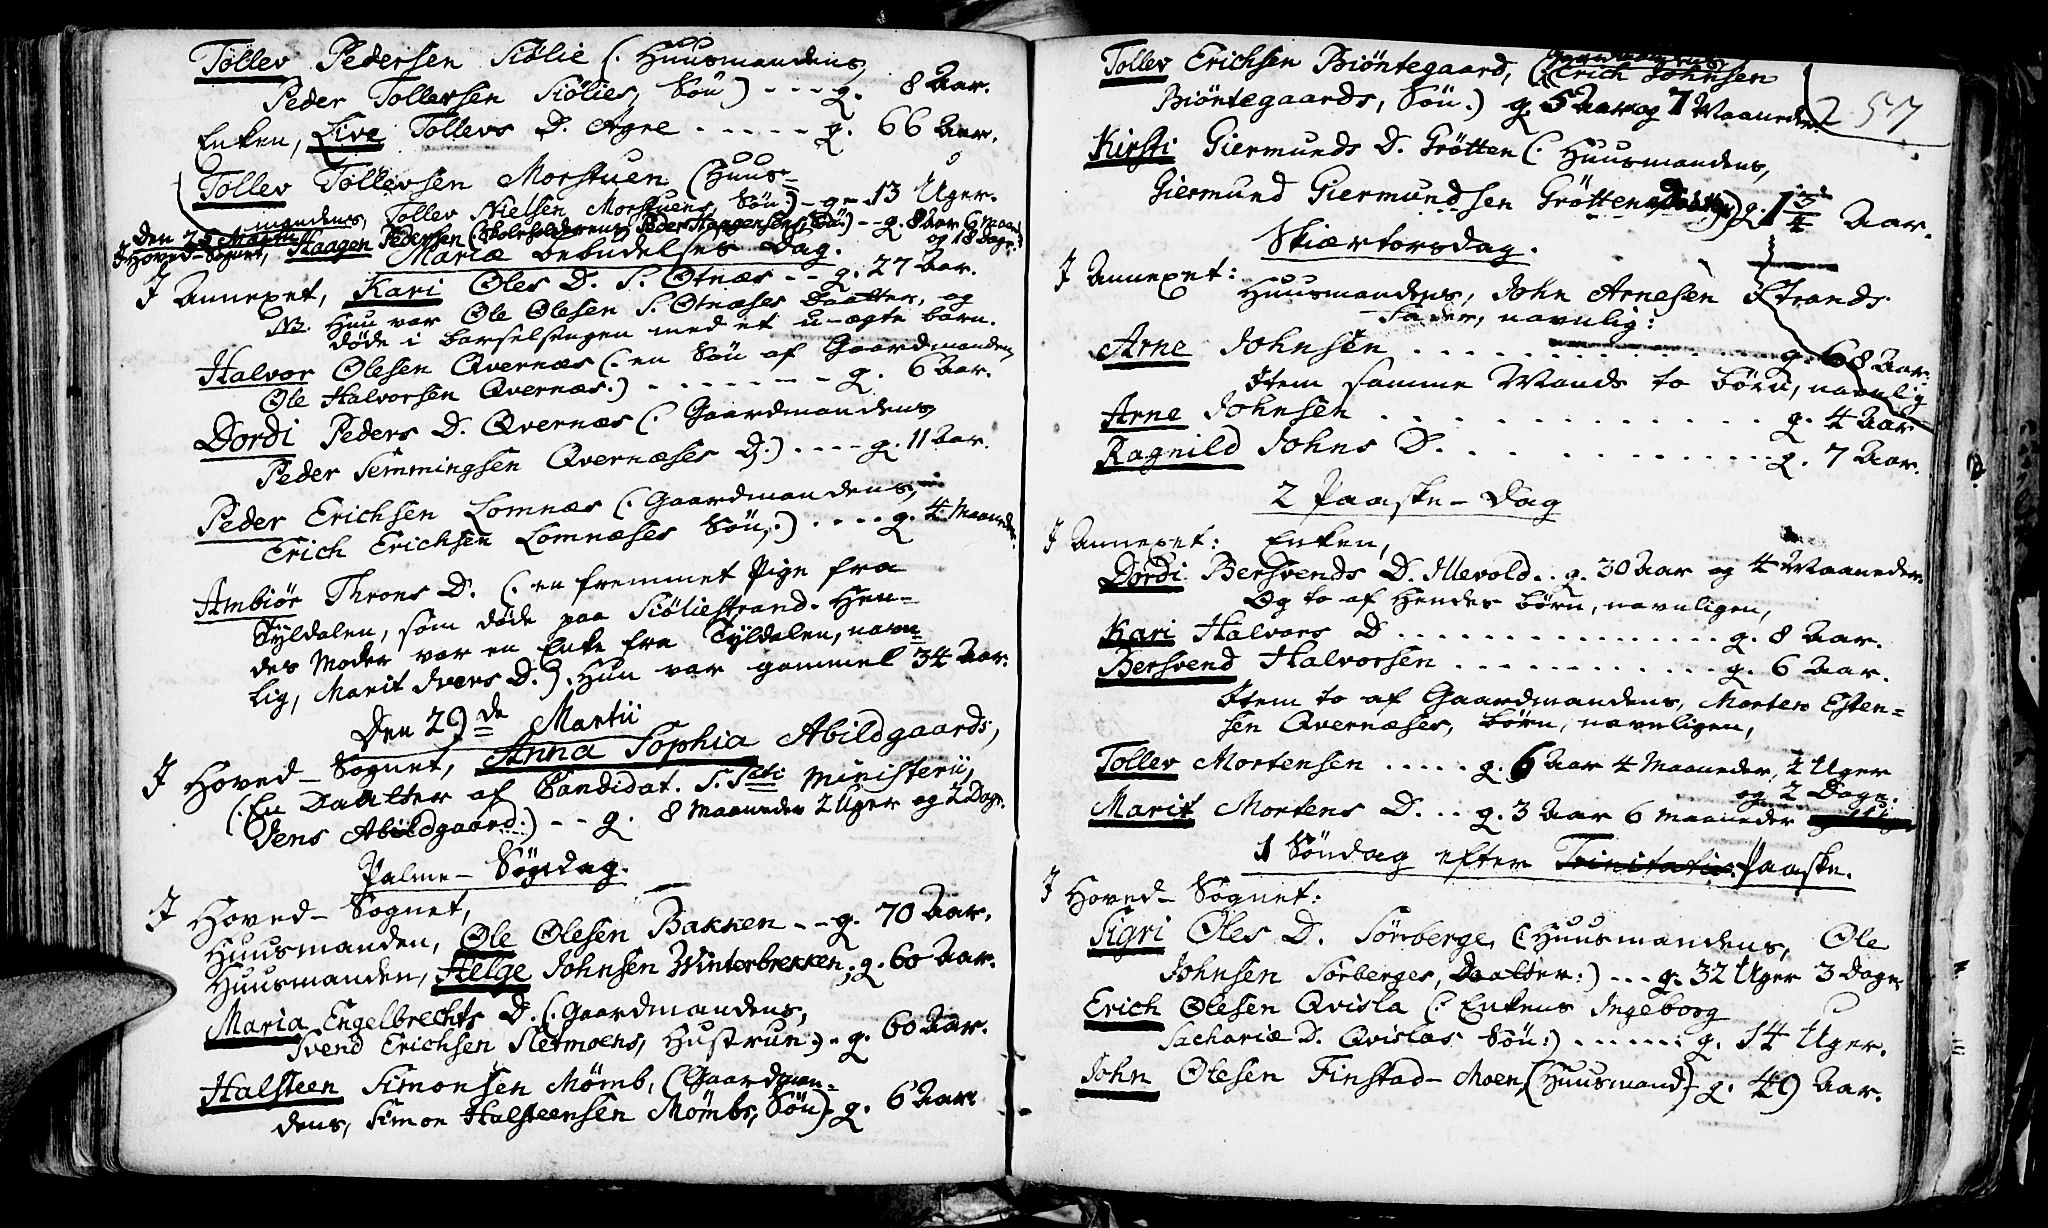 Tollev Pedersen Siølie (: Huusmandens,
Peder Tollevsen Siølies, Søn) - - - g. 8 Aar.
Enken, Live Tollevs D. Agre . . . . . g. 66 Aar.
Tollev Tollevsen Morstuen (Huus-
mandens, Tollev Nielsen Morstuens, Søn) - g - 13 Uger.
Den 25 Martii
J Hoved-Sognet, Haagen Pedersen (Skoleholderens Peder Haagensens Søn) - - g. 8 Aar 6 Maan.
og 18 Dage.
Mariæ bebudelses Dag.
J Annexet, Kari Oles D. S. Øtnæs - - g. 27 Aar.
NB. Hun var Ole Olesen S. Øtnæses Daatter, og
døde i barselsengen med et u-ægte barn.
Halvor Olesen Qvernæs (: en Søn af Gaardmanden
Ole Halvorsen Qvernæs:) . . . . . . . g. 6 Aar.
Dordi Peders D. Qvernæs (: Gaardmandens
Peder Semmingsen Qvernæses D:) . . . - g. 11 Aar.
Peder Erichsen Lomnæs (: Gaardmandens,
Erich Erichsen Lomnæses Søn:) . . . . g. 4 Maaneder.
Ambiør Throns D. (: en fremmet Pige fra
Tyldalen, som døde paa Siøliestrand. Hen-
des Moder var en Enke fra Tyldalen, navn-
lig, Marit Ivers D.). Hun var gammel 34 Aar.
Den 29de Martii
J Hoved-Sognet, Anna Sophia Abildgaards,
(: En Daatter af Candidat. S. Scti Ministerii,
Jens Abildgaard:) - - g. 8 Maaneder 2 Uger og 2 Dage.
Palme-Søndag.
J Hoved-Sognet,
Huusmanden, Ole Olesen Bakken - - g. 70 Aar.
Huusmanden, Helge Johnsen Winterbrekken. g. 60 Aar.
Maria Engelbrechts D. (: Gaardmandens,
Svend Erichsen Sletmoens, Hustrue:) - g. 60 Aar.
Halsteen Simonsen Momb, (Gaardman-
dens, Simon Halsteensen Mombs, Søn) g. 6 Aar.
Tollev Erichsen Biöntegaard, (: Erich Johnsen
Biöntegaards, Søn:) g. 5 Aar og 7 Maaneder.
257
Kirsti Giermunds D. Grötten (: Huusmandens,
Giermund Giermundsen Gröttens Daatter) g. 1 3/4 Aar.
Skiærtorsdag.
J Annexet:
Huusmandens, John Arnesen Strands
Fader, navnlig:
Arne Johnsen . . . . . . . . . . . . . g. 68 Aar.
Item samme Mands to børn, navnlig
Arne Johnsen . . . . . . . . . . . . g. 4 Aar
Ragnild Johns D. . . . . . . . . . . . . g. 7 Aar.
2 Paaske-Dag
J Annexet: Enken,
Dordi Bersvends D. Illevold . . g. 30 Aar og 4 Maaneder.
Og to af Hendes børn, navnligen,
Kari Halvors D . . . . . . . . . . . . . . . . g. 8 Aar.
Bersvend Halvorsen . . . . . . . . . . . . g. 6 Aar.
Item to af Gaardmandens, Morten Esten-
sen Qvernæses, børn, navnligen,
Tollev Mortensen . . . . . g. 6 Aar 4 Maaneder, 2 Uger
og 2 Dage.
Marit Mortens D. . . g. 3 Aar 6 Maaneder
1 Søndag efter Trinitatis Paaske.
J Hoved-Sognet:
Sigri Oles D. Sörberge, (Huusmandens, Ole
Johnsen Sörberges, Daatter:) . . . g. 32 Uger 3 Dage.
Erich Olesen Qvisla (: Enkens Ingeborg
Sachariæ D. Qvislas Søn:) . . . . . . g. 14 Uger.
John Olesen Finstad-Moen, (Huusmand) g. 49 Aar.